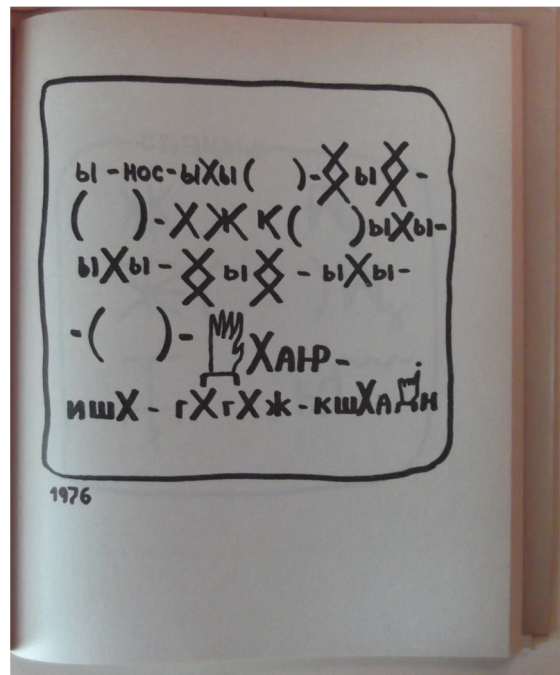 ы - нос - ыХы ( ) - ы -
( ) - Х Ж К ( ) ыХы -
ыХы - ы - ыХы -
- ( ) - Хаюр -
ишХ - гХгХж - кшХа н
1976